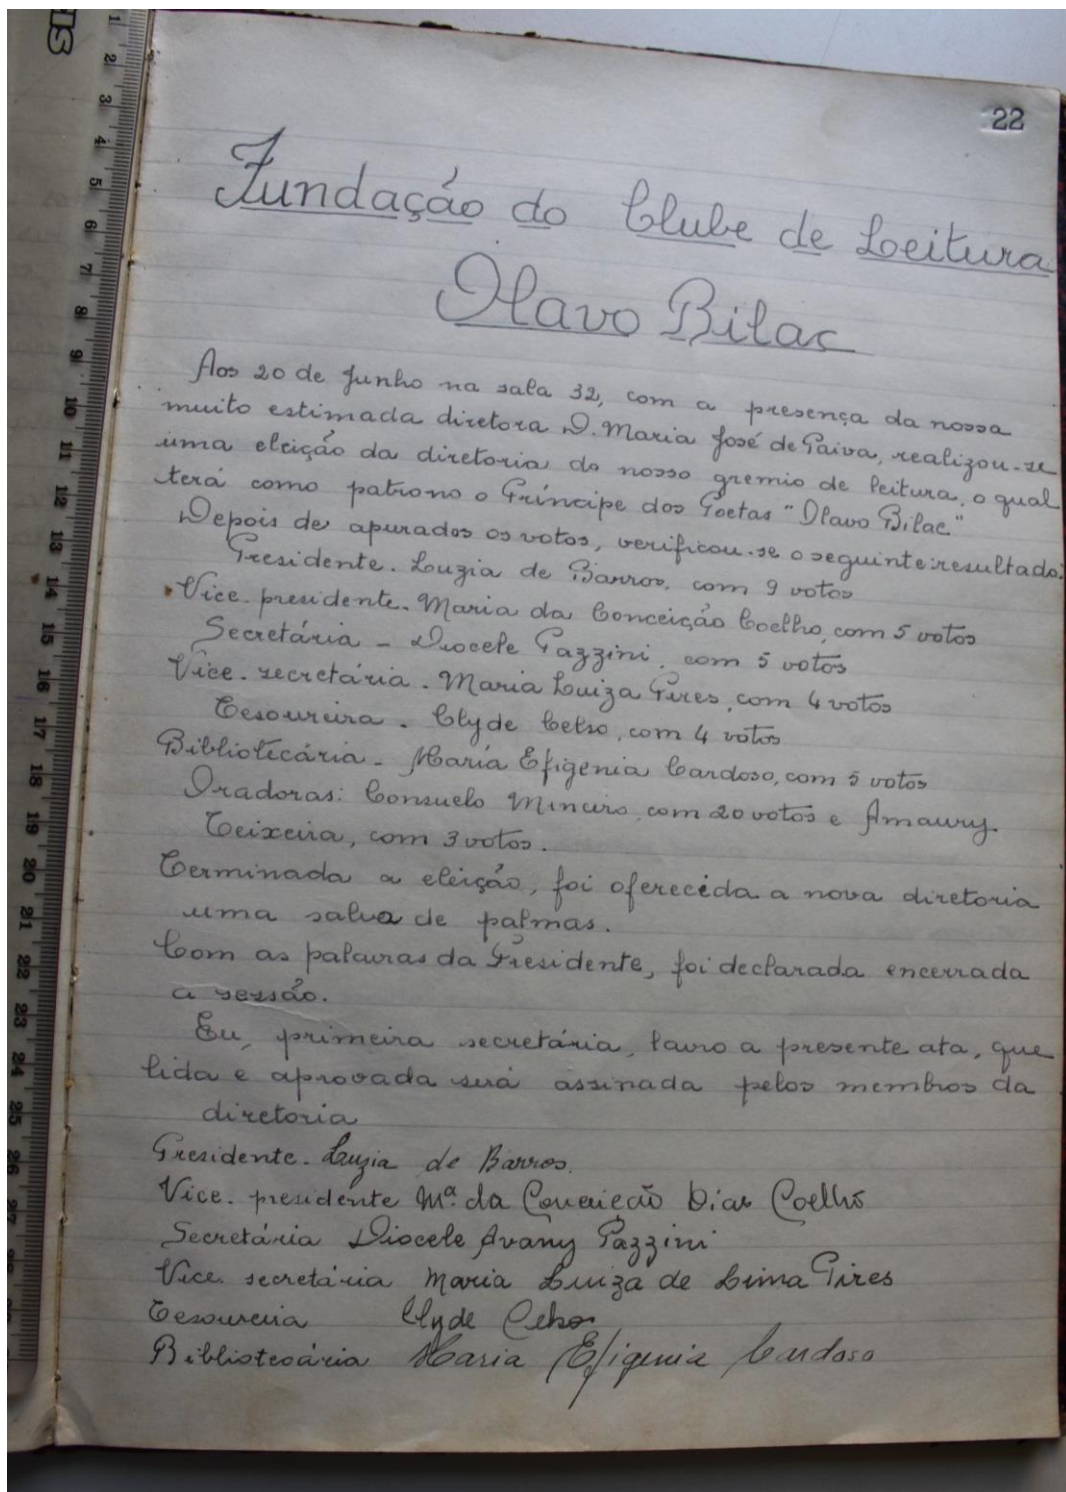 22
Fundação do Clube de Leitura
Olavo Bilac
Aos 20 de Junho na sala 32, com a presença da nossa
muito estimada diretora D. Maria José de Paiva, realizou-se
uma eleição da diretoria do nosso gremio de leitura, o qual
terá como patrono o Príncipe dos Poetas "Olavo Bilac."
Depois de apurados os votos, verificou-se o seguinte resultado:
Presidente. Luzia de Barros, com 9 votos
Vice-presidente. Maria da Conceição Coelho, com 5 votos
Secretária - Diocele Pazzini, com 5 votos
Vice-secretária. Maria Luiza Pires, com 4 votos
Tesoureira. Clyde Celso, com 4 votos
Bibliotecária - Maria Efigenia Cardoso, com 5 votos
Oradoras: Consuelo Mineiro com 20 votos e Amaury
Teixeira, com 3 votos.
Terminada a eleição, foi oferecida a nova diretoria
uma salva de palmas.
Com as palavras da Presidente, foi declarada encerrada
a sessão.
Eu, primeira secretária, lavro a presente ata, que
lida e aprovada será assinada pelos membros da
diretoria
Presidente. Luzia de Barros.
Vice-presidente Mª. da Conceição Dias Coelho
Secretária Diocele Avany Pazzini
Vice secretária Maria Luiza de Lima Pires
Tesoureira Clyde Celso
Bibliotecária Maria Efigenia Cardoso
1
2
3
4
5
6
7
8
9
10
11
12
13
14
15
16
17
18
19
20
21
22
23
24
25
26
27